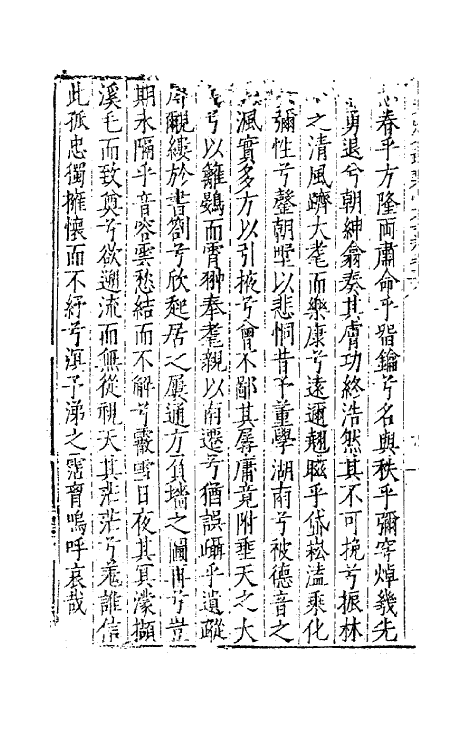 春乎方隆両肅命乎留鑰兮名與秩乎彌穹焯幾先
勇退兮朝紳翕奏其膚功終浩然其不可挽兮振林
之清風躋大耄而樂康兮遠邇翹瞩乎岱崧溘乘化
彌性兮罄朝埜以悲恫昔予董學湖南兮被德音之
渢實多方以引掖兮曾不鄙其孱庸竟附垂天之大
兮以雞鶚而霄翀奉耄親以南還兮猶誤囑乎遺蹤
覼縷於書劄兮欣起居之屢通方負墻之圖再兮豈
期永隔乎音容雲愁結而不解兮霰雪日夜其冥濛擷
溪毛而致奠兮欲遡流而無從視天其茫茫兮羗誰信
此孤忠獨擁懷而不紓兮溟予涕之霑胷嗚呼哀哉